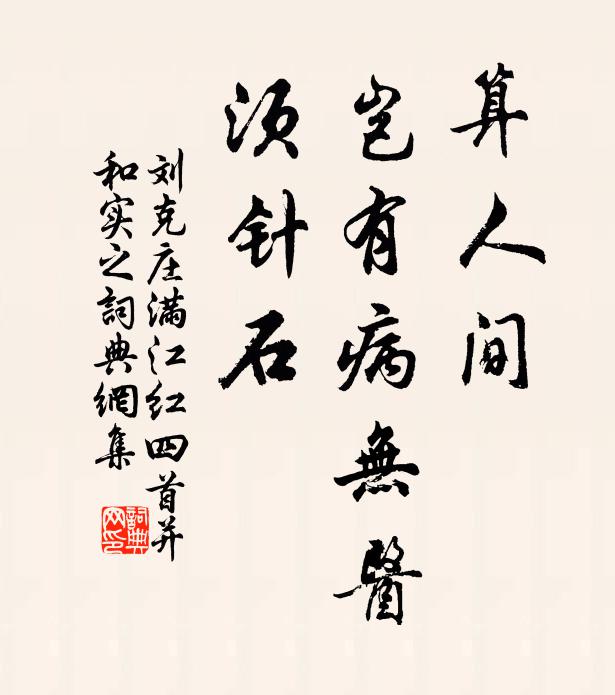 算人间
岂有病無醫
须针石
刘克庄满江红四首并
和实之詞典網集
詞典
网印